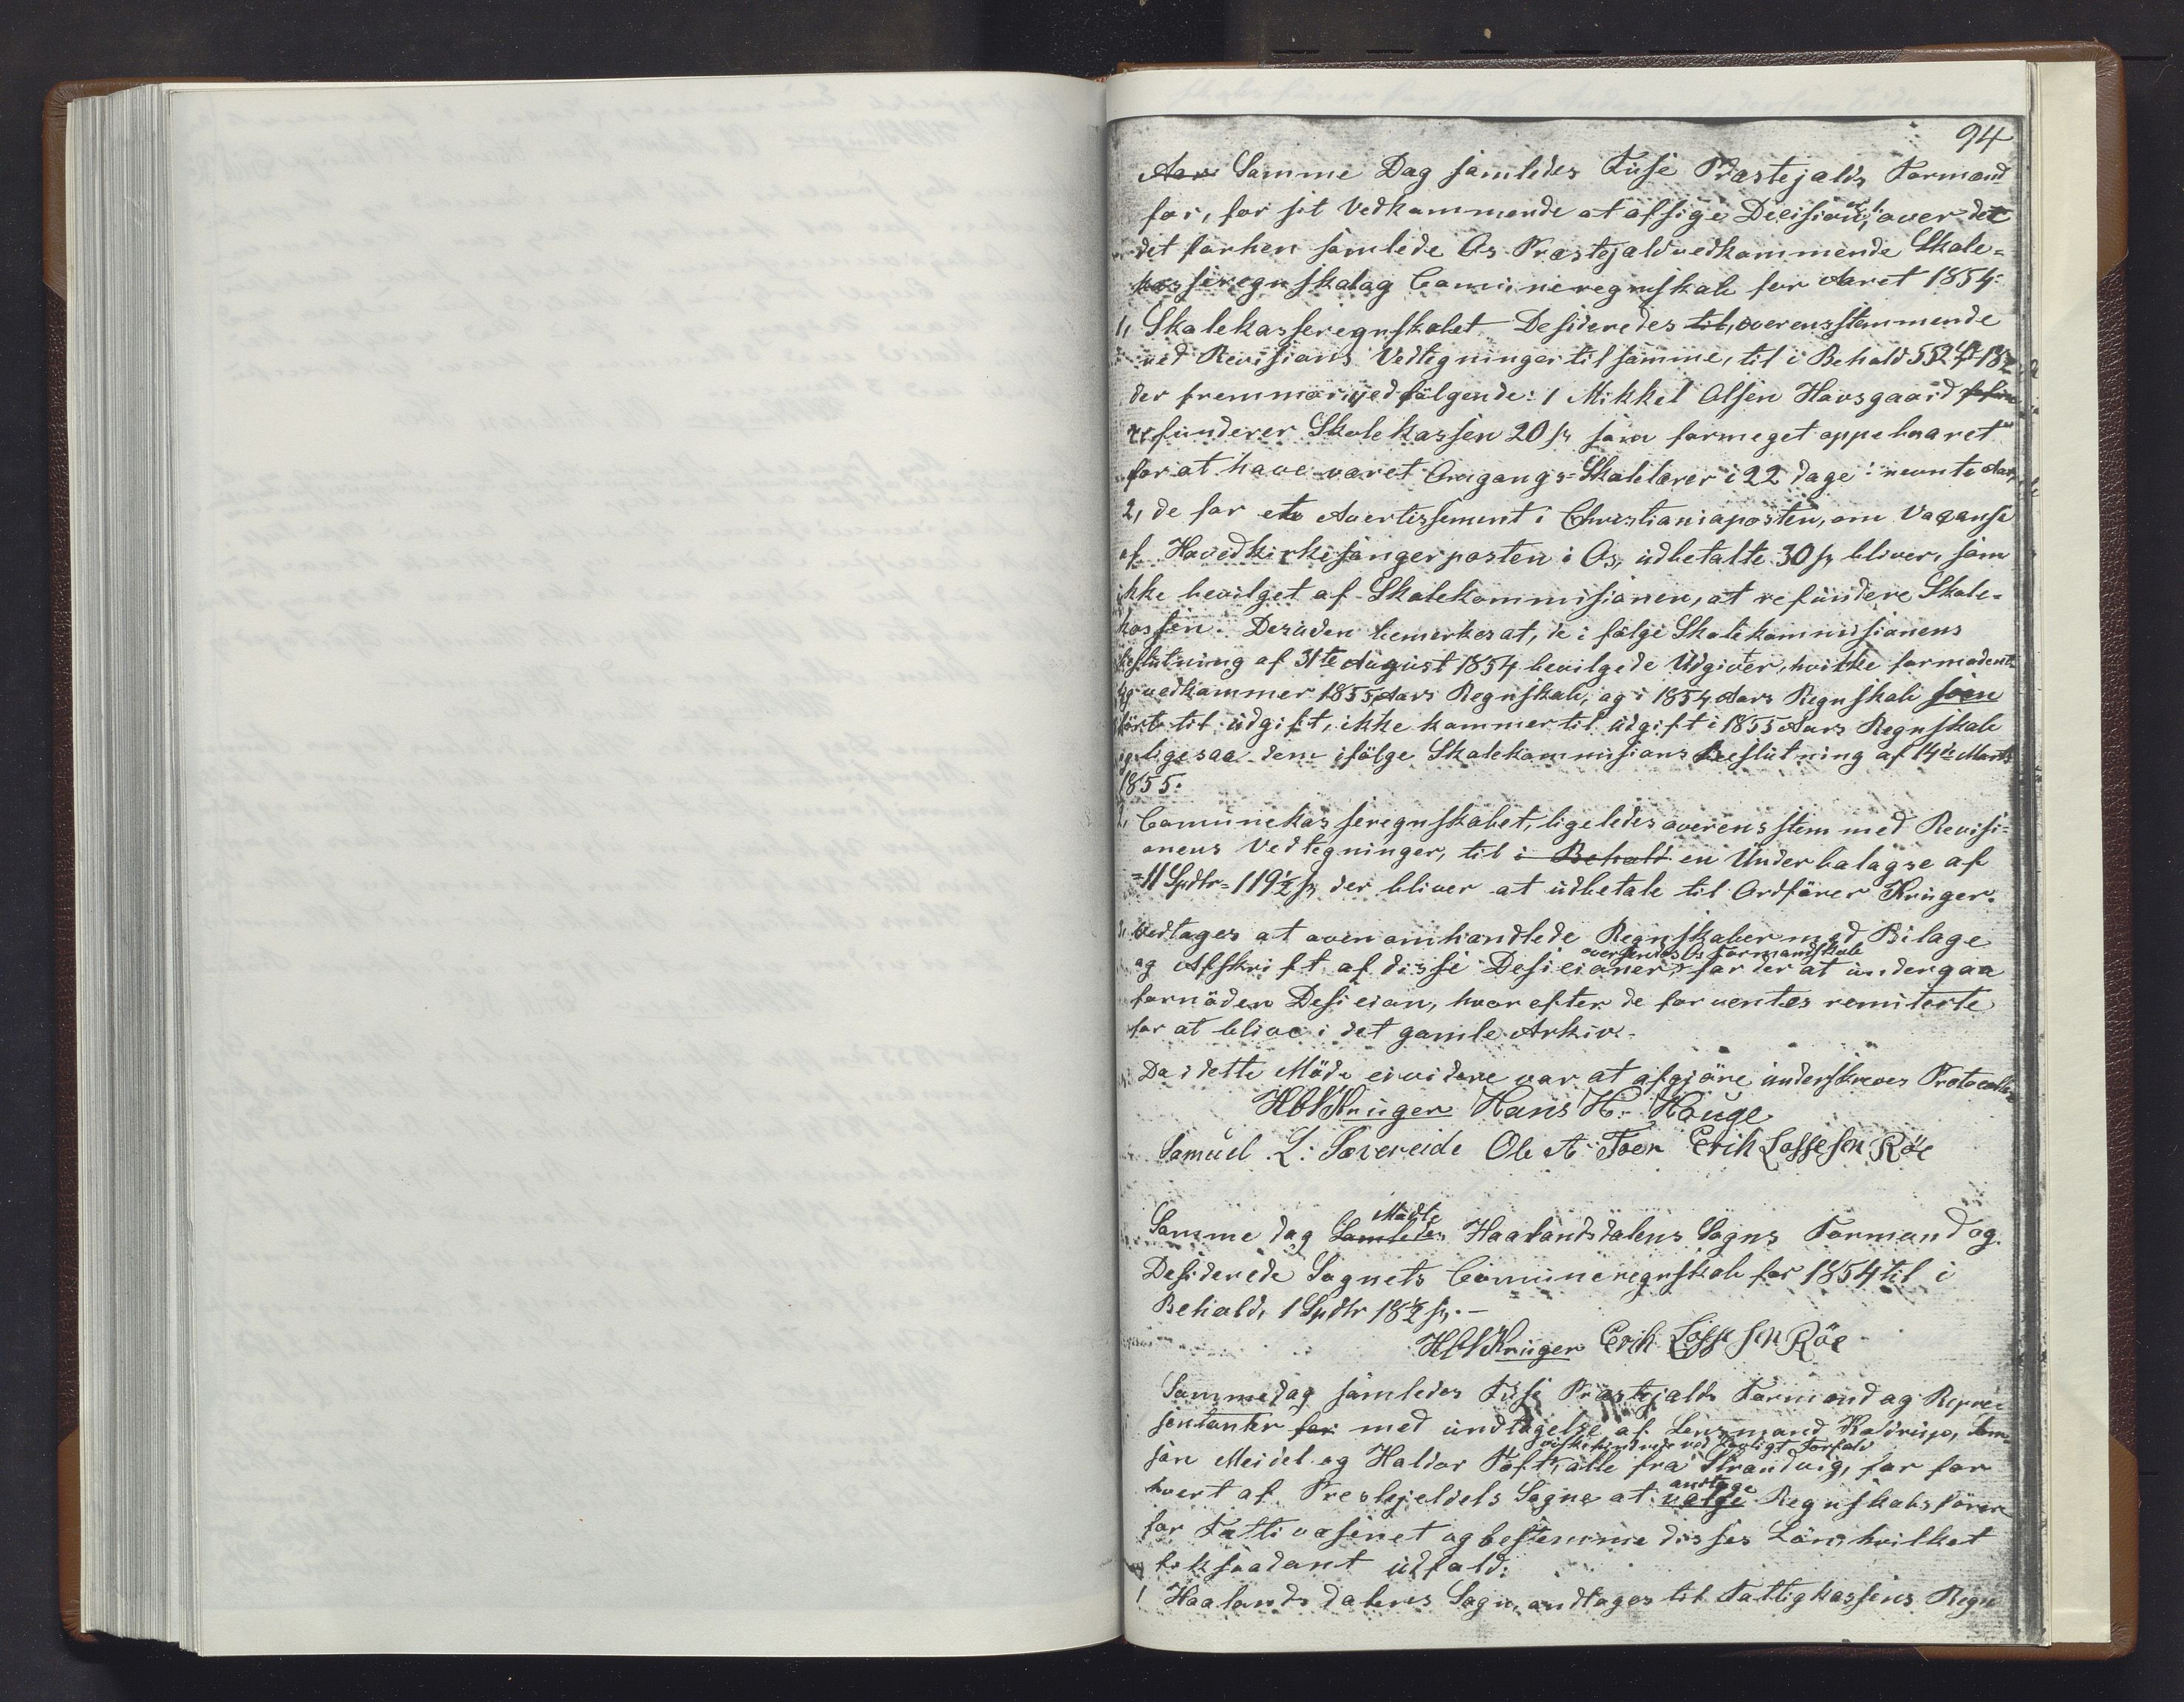 94
Aar Samme Dag samledes Fuse Præstejalds Formænd
for, for sit Vedkommende at afsige Decision, over det
det forhen samlede Os Præstejald vedkommende Skole-
kasseregnskab og Comuneregnskab for Aaret 1854:
1, Skolekasseregnskabet Desideredes til, overensstemmende
ved Revisions Vedtegninger til samme, til i Behold 552
der fremmøer ved følgende: 1 Mikkel Olsen Havsgaard
refunderer Skolekassen 20 s som formeget oppebaaret
for at have været Omgangs-Skolelærer i 22 dage nevnte Aar,
2, de for et Avertissement i Christianiaposten, om Vaganse
af Hovedkirkesangerposten i Os, udbetalte 30 s bliver, som
ikke bevilget af Skolekommisionen, at refundere Skole-
kassen. Desuden bemerkes at, de i følge Skolekommisionens
Beslutning af 31te August 1854 bevilgede Udgivter, hvilke formodent-
lig vedkommer 1855 Aars Regnskab, og i 1854 Aars Regnskab som
ført til udgift, ikke kommer til udgift i 1855 Aars Regnskab
og ligesaa dem ifølge Skolekommisions Beslutning af 14de Marts
1855.
2, Comunekasseregnskabet, ligeledes overensstem med Revisi-
onens Vedtegninger, til i Behold en Underbalagse af
=11 Spdlr= 119½ s, der bliver at udbetale til Ordfører Krüger.
3, Vedtages at ovenomhandlede Regnskaber med Bilage
oversendes Os Formandskab
og Afskrift af disse Desicioner, for der at undergaa
fornøden Desicion, hvorefter de forventes remiterte
for at blive i det gamle Arkiv.
Da i dette Møde ei videre var at afgjøre underskreves Protocollen
HCKrüger Hans H. Hauge
Samuel L: Sævereide Ole A Toen Erik Lassesen Røe
Mødte
Samme dag Samledes Haalandsdalens Sogns Formænd og
Desiderede Sognets Comuneregnskab for 1854 til i
Behold, 1 Spdlr 18½ s. -
HCKrüger Erik Lassesen Røe
Sammedag samledes Fuse Præstejalds Formænd og Repre-
sentanter for med undtagelse af Lensmand Koldrup,
hindrede ved Lovligt Forfald
Meidel og Haldor Tøft, alle fra Strandvig, for for
andtage
hvert af Prestejeldets Sogne at vælge Regnskabsfører
for Fattivæsenet og bestemme disses Løn, hvilket
fik saadant udfald:
1 Haalandsdalens Sogn, andtages til Fattigkassens Regn